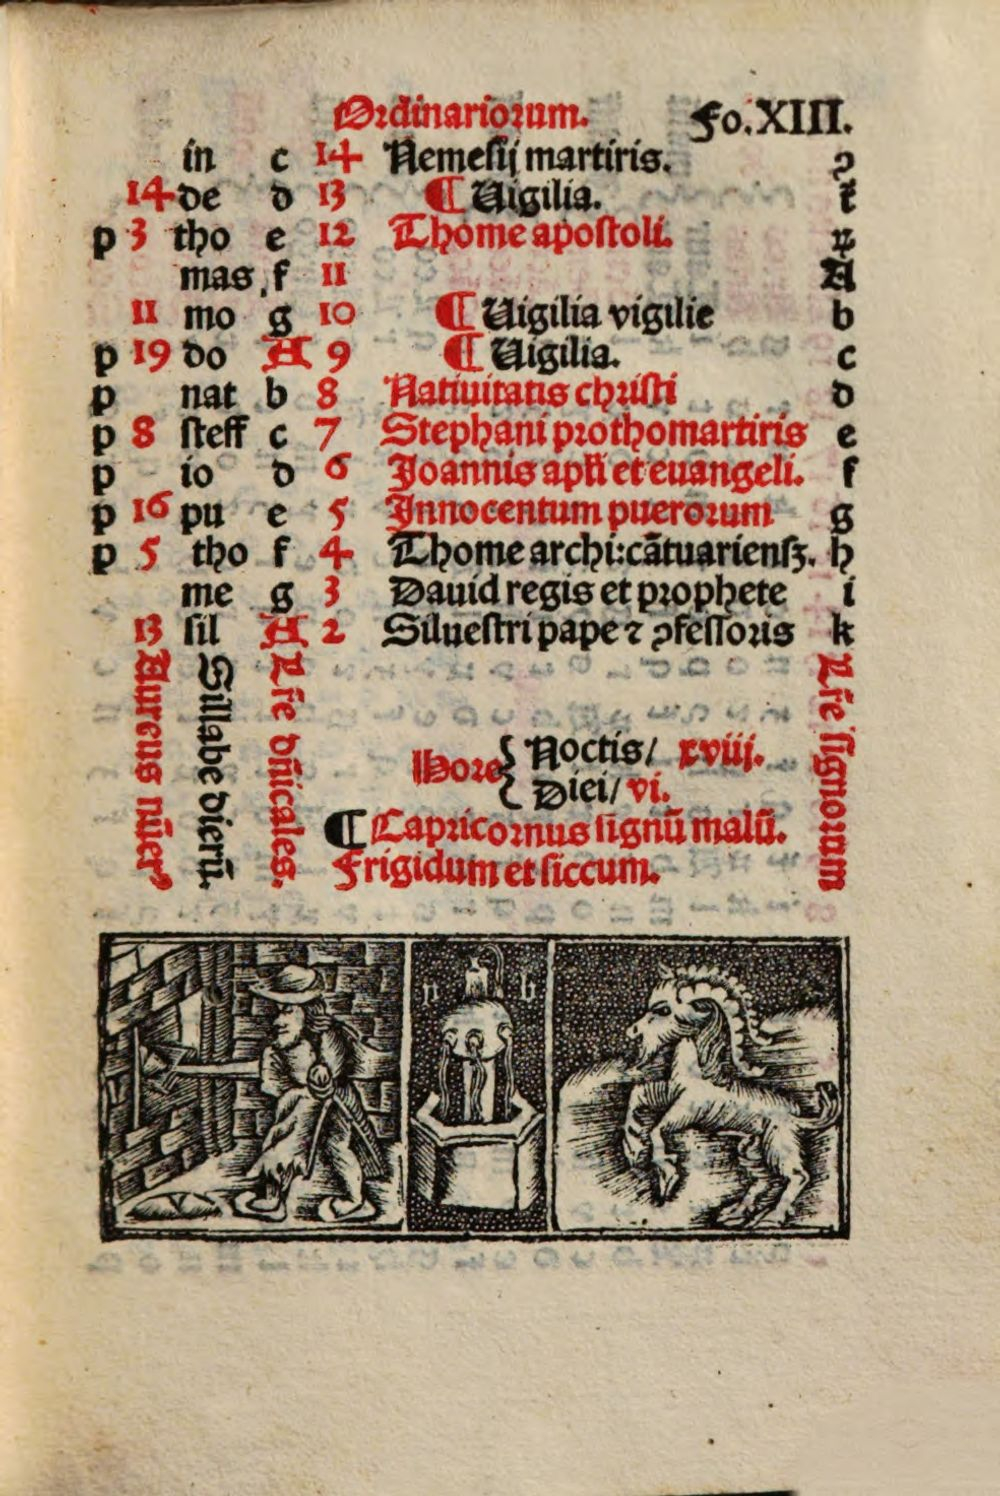 Ordinariorum. Fo.XIII.
in c 14 Nemesij martiris. ꝛ
14 de d 13 ¶ Uigilia. t
p 3 tho e 12 Thome apostoli.
mas, f 11 A
11 mo g 10 ¶ Uigilia vigilie b
p 19 do A 9 ¶ Uigilia. c
p nat b 8 Natiuitatis christi d
p 8 steff c 7 Stephani prothomartiris e
p io d 6 Joannis apłi et euangeli. f
p 16 pu e 5 Innocentum puerorum g
p 5 tho f 4 Thome archi:cātuariensꝫ. h
me g 3 Dauid regis et prophete i
13 sil A 2 Siluestri pape ⁊ ꝯfessoris k
Aureus nūer⁹
Sillabe dierū.
Lr̄e dn̄icales.
Lr̄e signorum
Hore { Noctis/ xviij.
Diei/ vi.
¶ Capricornus signū malū.
Frigidum et siccum.